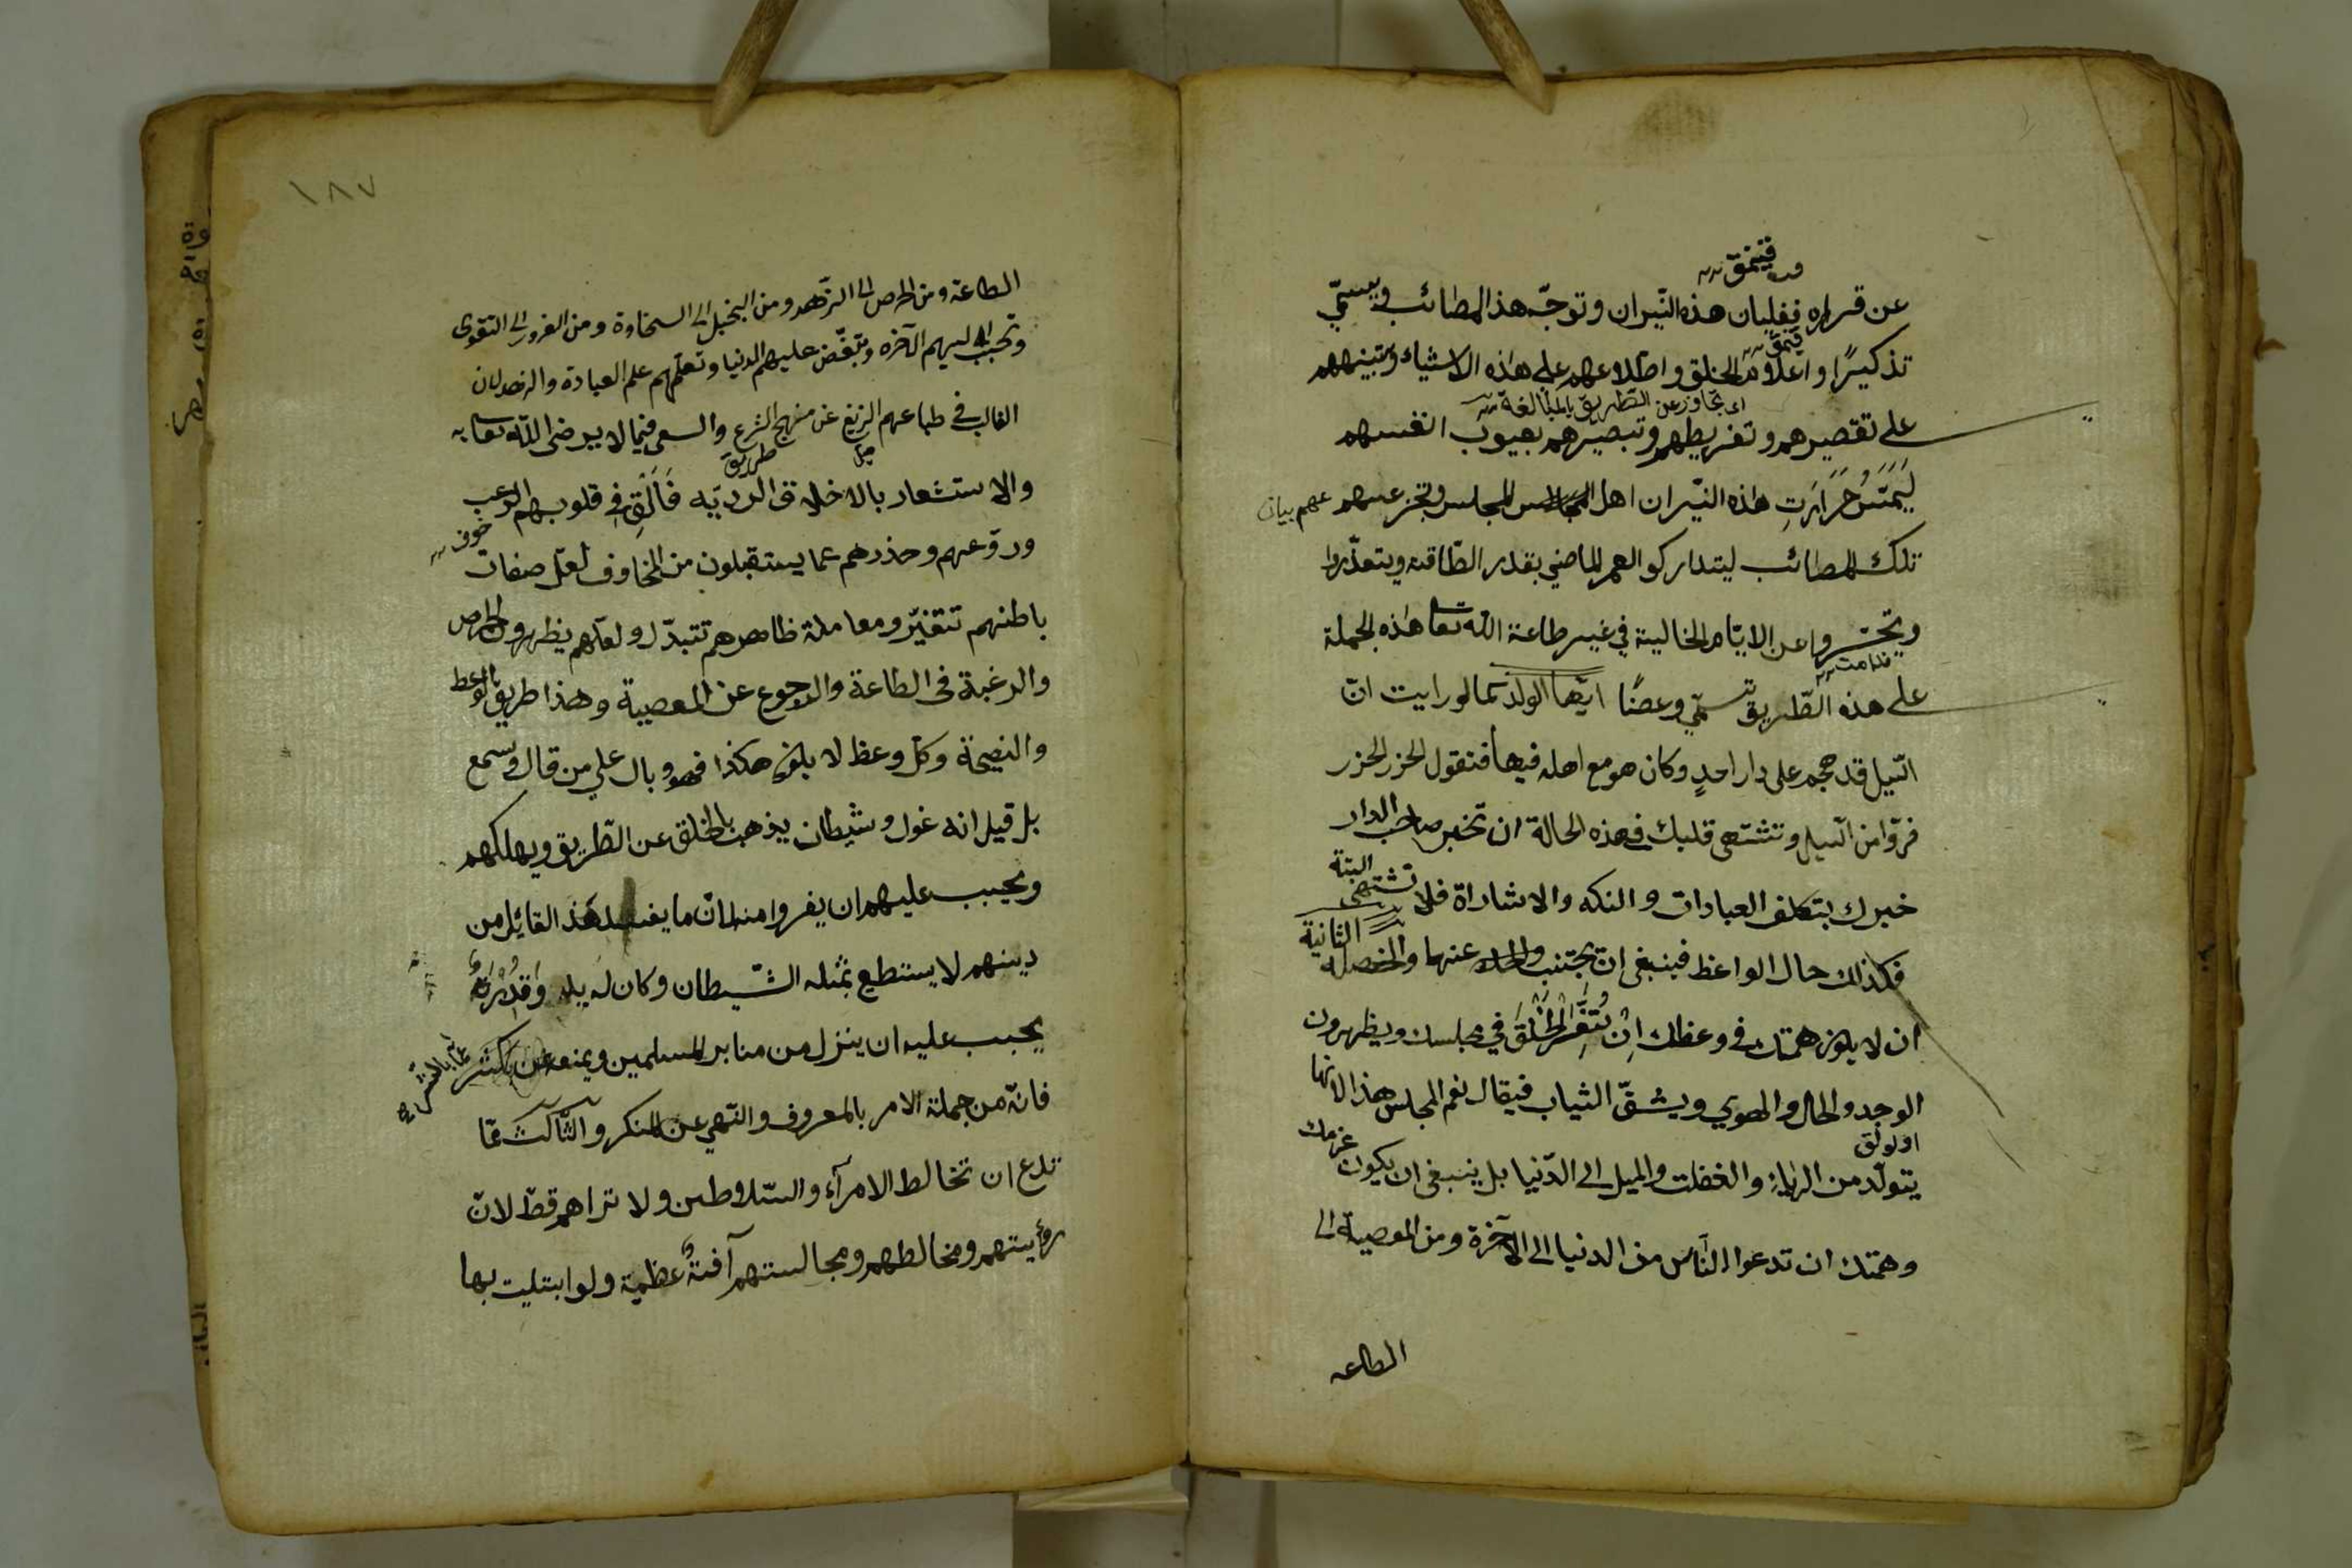 فيتمق
عن قراره فغليان هذه النيران وتوجّه هذ المصائب ويسمّى
تذكيرًا واعلام الخلق واطلاعهم على هذه الاشياء وتبينههم
اى تجاوز عن الطريق بالمبالغة
على تقصيرهم وتفريطهم وتبصيرهم بعيوب انفسهم
ليمسّ حرارت هذه النيران اهل المجلس وتجزعهم
تلك المصائب ليتداركو العمر الماضي بقدر الطّاقه ويتعذّروا
ويتحسّروا عن الايّام الخالية في غير طاعة الله تعا هذه الجملة
ندامت
على هذه الطّريق تسمّي وعضًا ايّها الولد كما لو رايت انّ
السّيل قد هجم على دار احدٍ وكان هو مع اهله فيها فتقول الحزر الحزر
فرّوا من السّيل وتشتهى قلبك في هذه الحالة ان تخبر صاحب الدار
خبرك بتكلف العبادات والنكه والاشاراة فلا تشتهى البتة
فكذلك حال الواعظ فينبغى ان يجتنب عنها والخصلة الثانية
ان لا يكون همتك في وعظك ان يتفرّ الخلق في مجلسك ويظهرون
الوجد والحال والهوي ويشقّ الثياب فيقال نعم المجلس هذا لانها
اولولق
يتولّد من الرياء والغفلت والميل الى الدّنيا بل ينبغى ان يكون عزمك
وهمتك ان تدعوا النّاس من الدنيا الى الآخرة ومن المعصية الى
الطاعه
١٨٧
الطاعة ومن الحرص الى الزّهد ومن البخل الى السخاوة ومن الغرور الى التقوى
وتحبب اليهم الآخرة وتبغّض عليهم الدنيا وتعلّمهم علم العبادة والزهد لان
الغالب في طباعهم الزيغ عن منهج الشرع والسعى فيما لا يرضى الله تعا به
ميل طريق
والاستشعار بالاخلاق الرديّه فَاَلْقِ في قلوبهم الرعب
خوف
وروّعهم وحذرهم عما يستقبلون من المخاوف لعلّ صفات
باطنهم تتغيّر ومعاملة ظاهرهم تتبدّل ولعلّهم يظهرون الحرص
والرغبة فى الطاعة والرجوع عن المعصية وهذا طريق الوعط
والنصيحة وكلّ وعظ لا يكون هكذا فهو وبال على من قال وسمع
بل قيل انه غول وشيطان يذهب بالخلق عن الطّريق ويهلكهم
ويجب عليهم ان يفروا منه لانّ ما يفسد هذ القائل من
دينهم لا يستطع بمثله الشّيطان وكان له يد وقدرة
يجب عليه ان ينزل من منابر المسلمين ويمنعه عن
فانّه من جملة الامر بالمعروف والنّهي عن المنكر والثّالث ممّا
تدع ان تخالط الامرآء والسّلاطين ولا تراهم قطّ لانّ
رؤيتهم ومخالطهم ومجالستهم آفةٌ عظمية ولو ابتليت بها